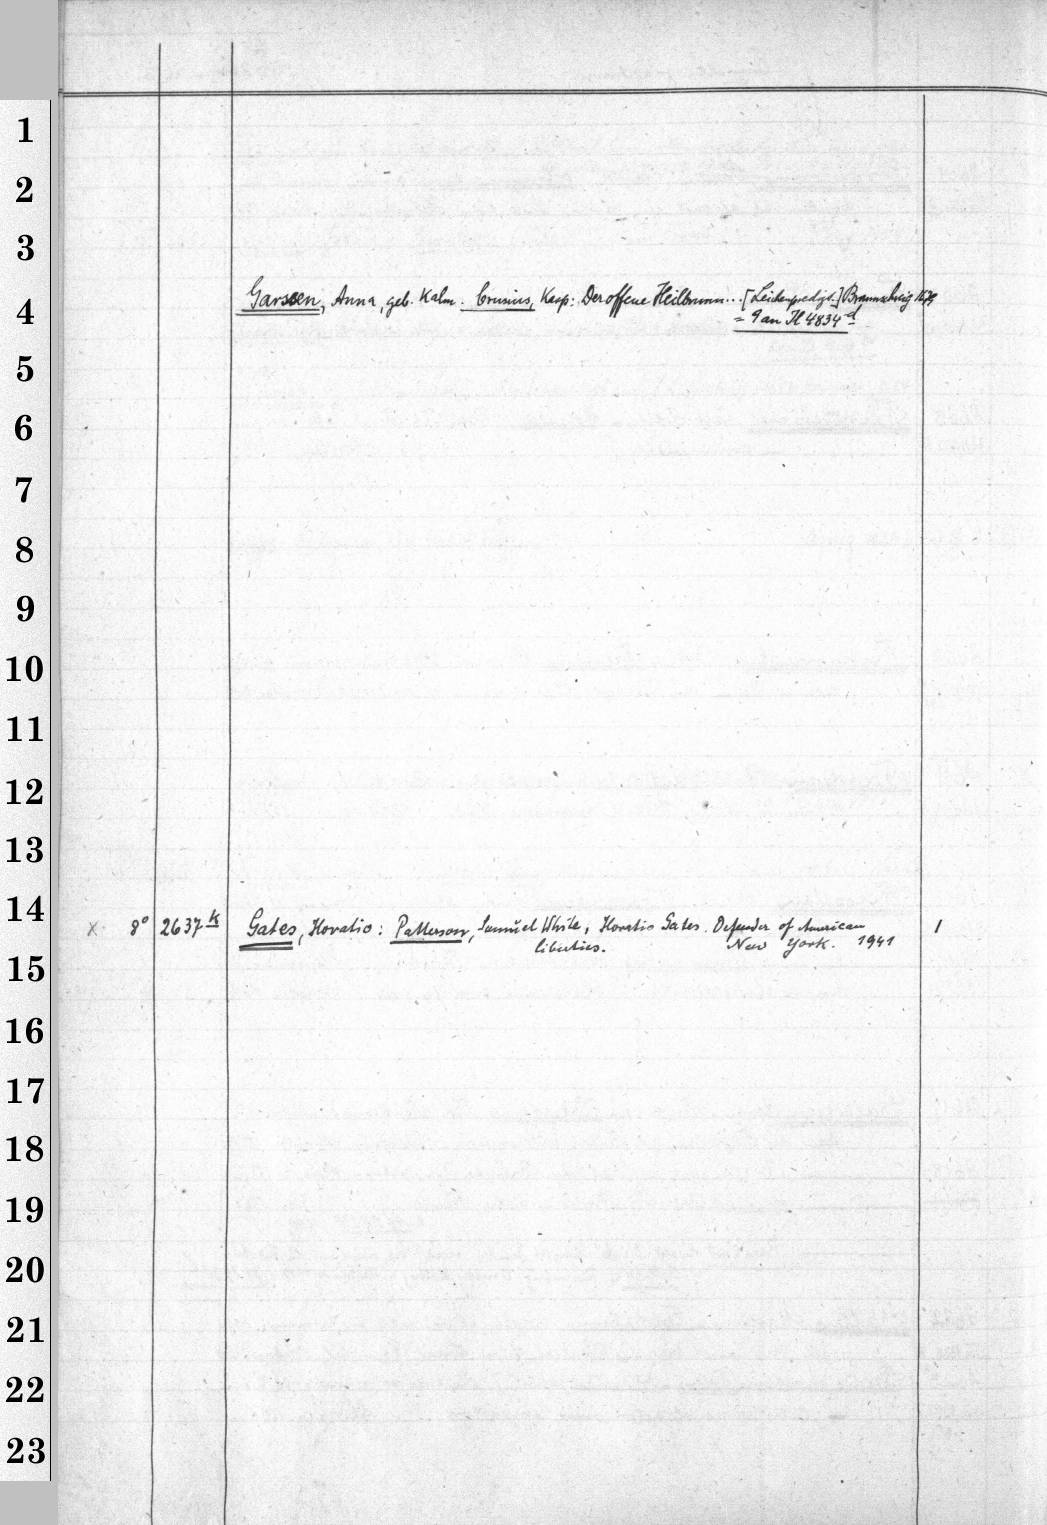 1
2
3
Garssen, Anna, geb. Kalm. Crusius, Kasp: Der offene Heilbrunn... [Leichenpredigt.] Braunschweig 1679
4
= 9 an H 4834 d
5
6
7
8
9
10
11
12
13
14
x 8° 2637 k Gates, Horatio: Patterson, Samuel White, Horatio Gates. Defender of American 1
liberties. New York. 1941
15
16
17
18
19
20
21
22
23